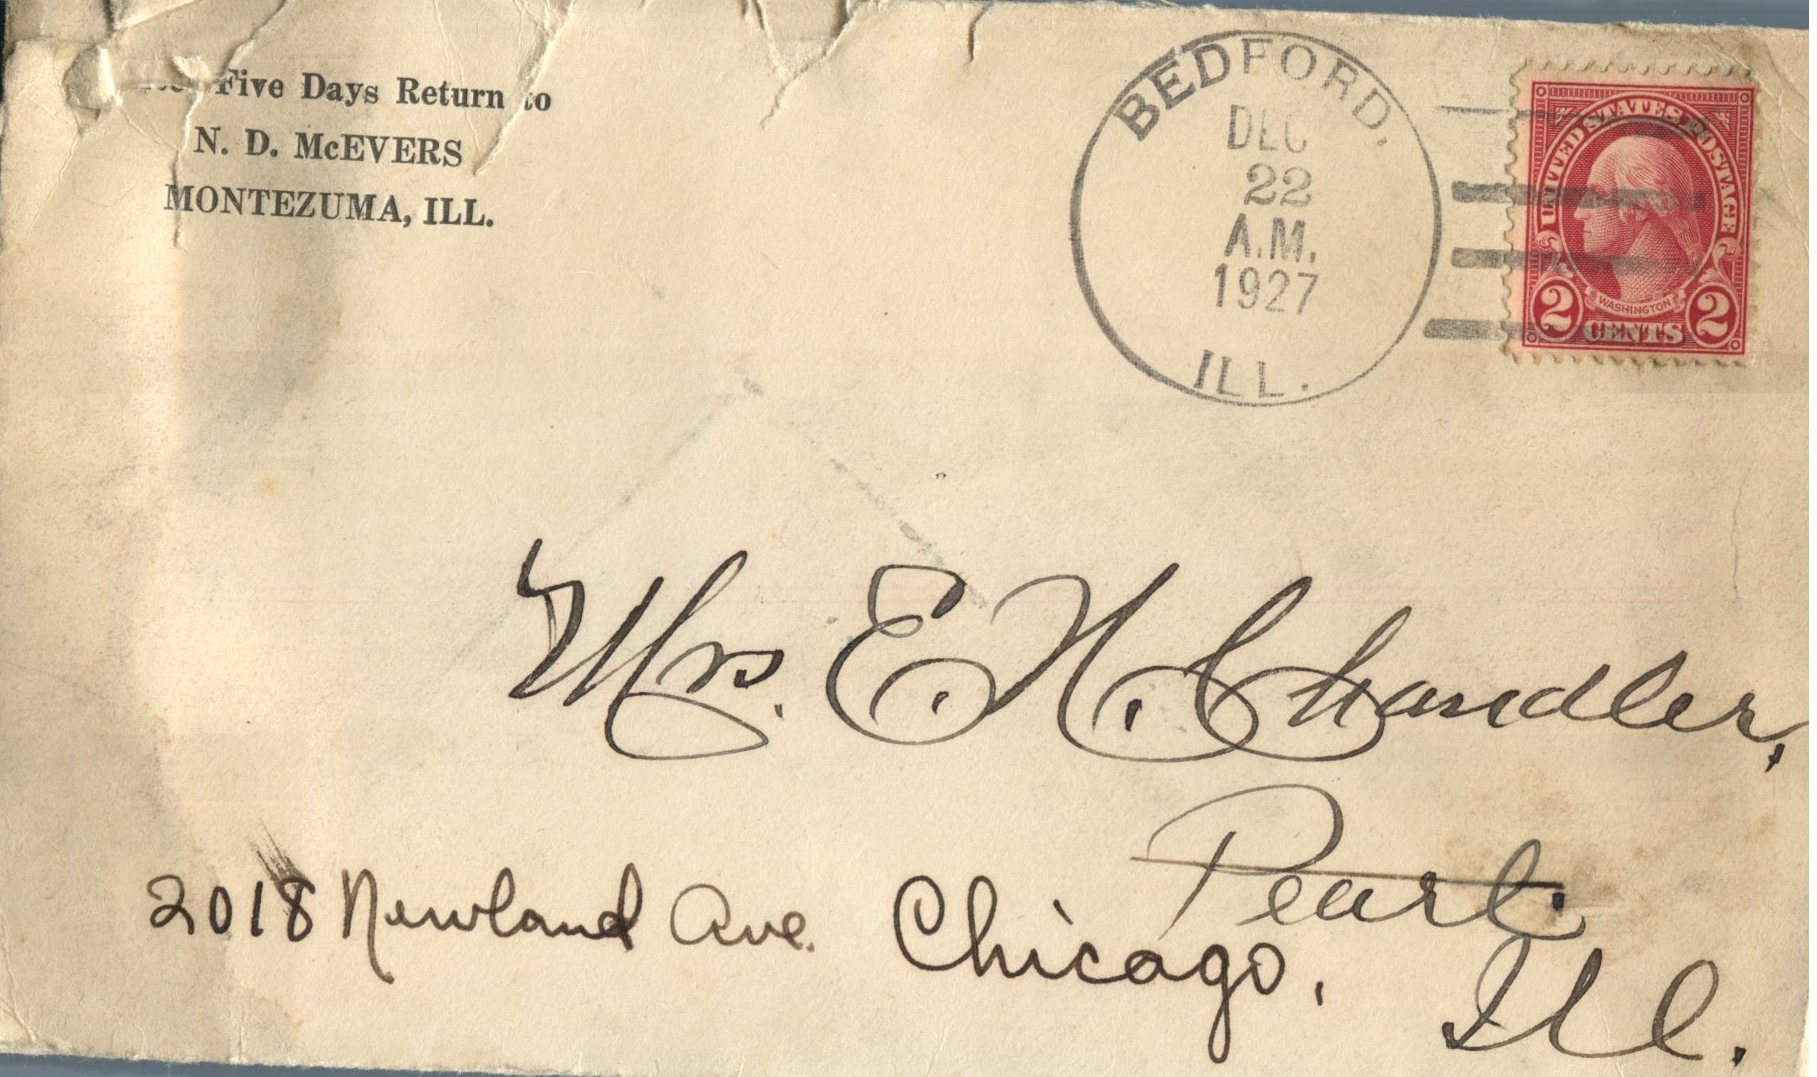 Five Days Return to
N. D. McEVERS
MONTEZUMA, ILL.
BEDFORD,
DEC
22
A.M.
1927
ILL.
UNITED STATES POSTAGE
WASHINGTON
2 CENTS 2
Mrs. E. N. Chandler,
Pearl.
2018 Newland Ave. Chicago,
Ill.